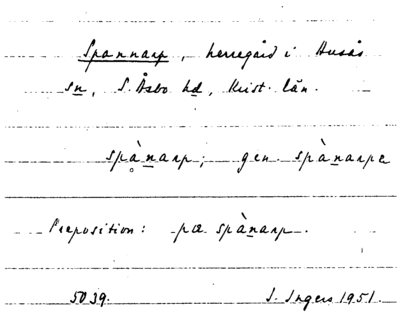 Spannarp, herregård i Husås
sn, S. Åsbo hd, Krist. län.
spànarp; gen. spànarps
Preposition: pa spànarp.
5039. I. Ingers 1951.